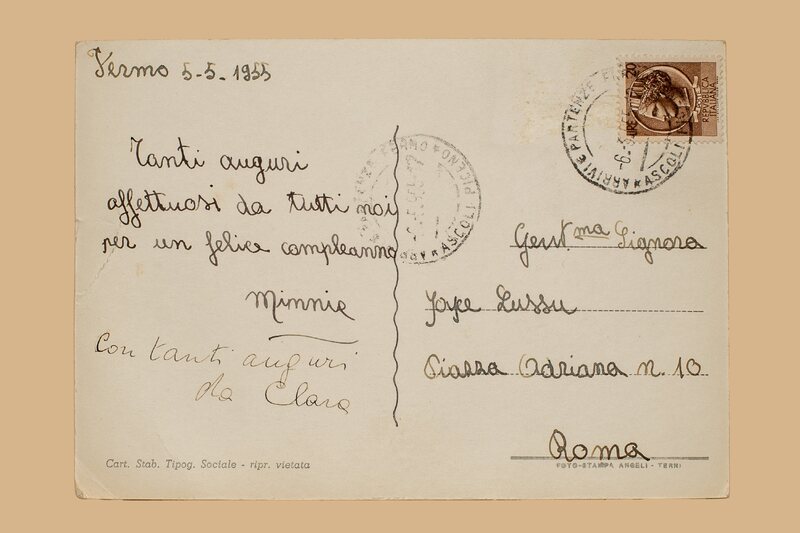 Fermo 5-5-1955
Tanti auguri
affettuosi da tutti noi
per un felice compleanno
Minnie
Con tanti auguri
da Clara
Cart. Stab. Tipog. Sociale - ripr. vietata
FERMO
ASCOLI PICENO
ARRIVI E PARTENZE
ASCOLI
LIRE 20
REPUBBLICA
ITALIANA
Gent.ma Signora
Joyce Lussu
Piazza Adriana n. 10
Roma
FOTO-STAMPA ANGELI - TERNI